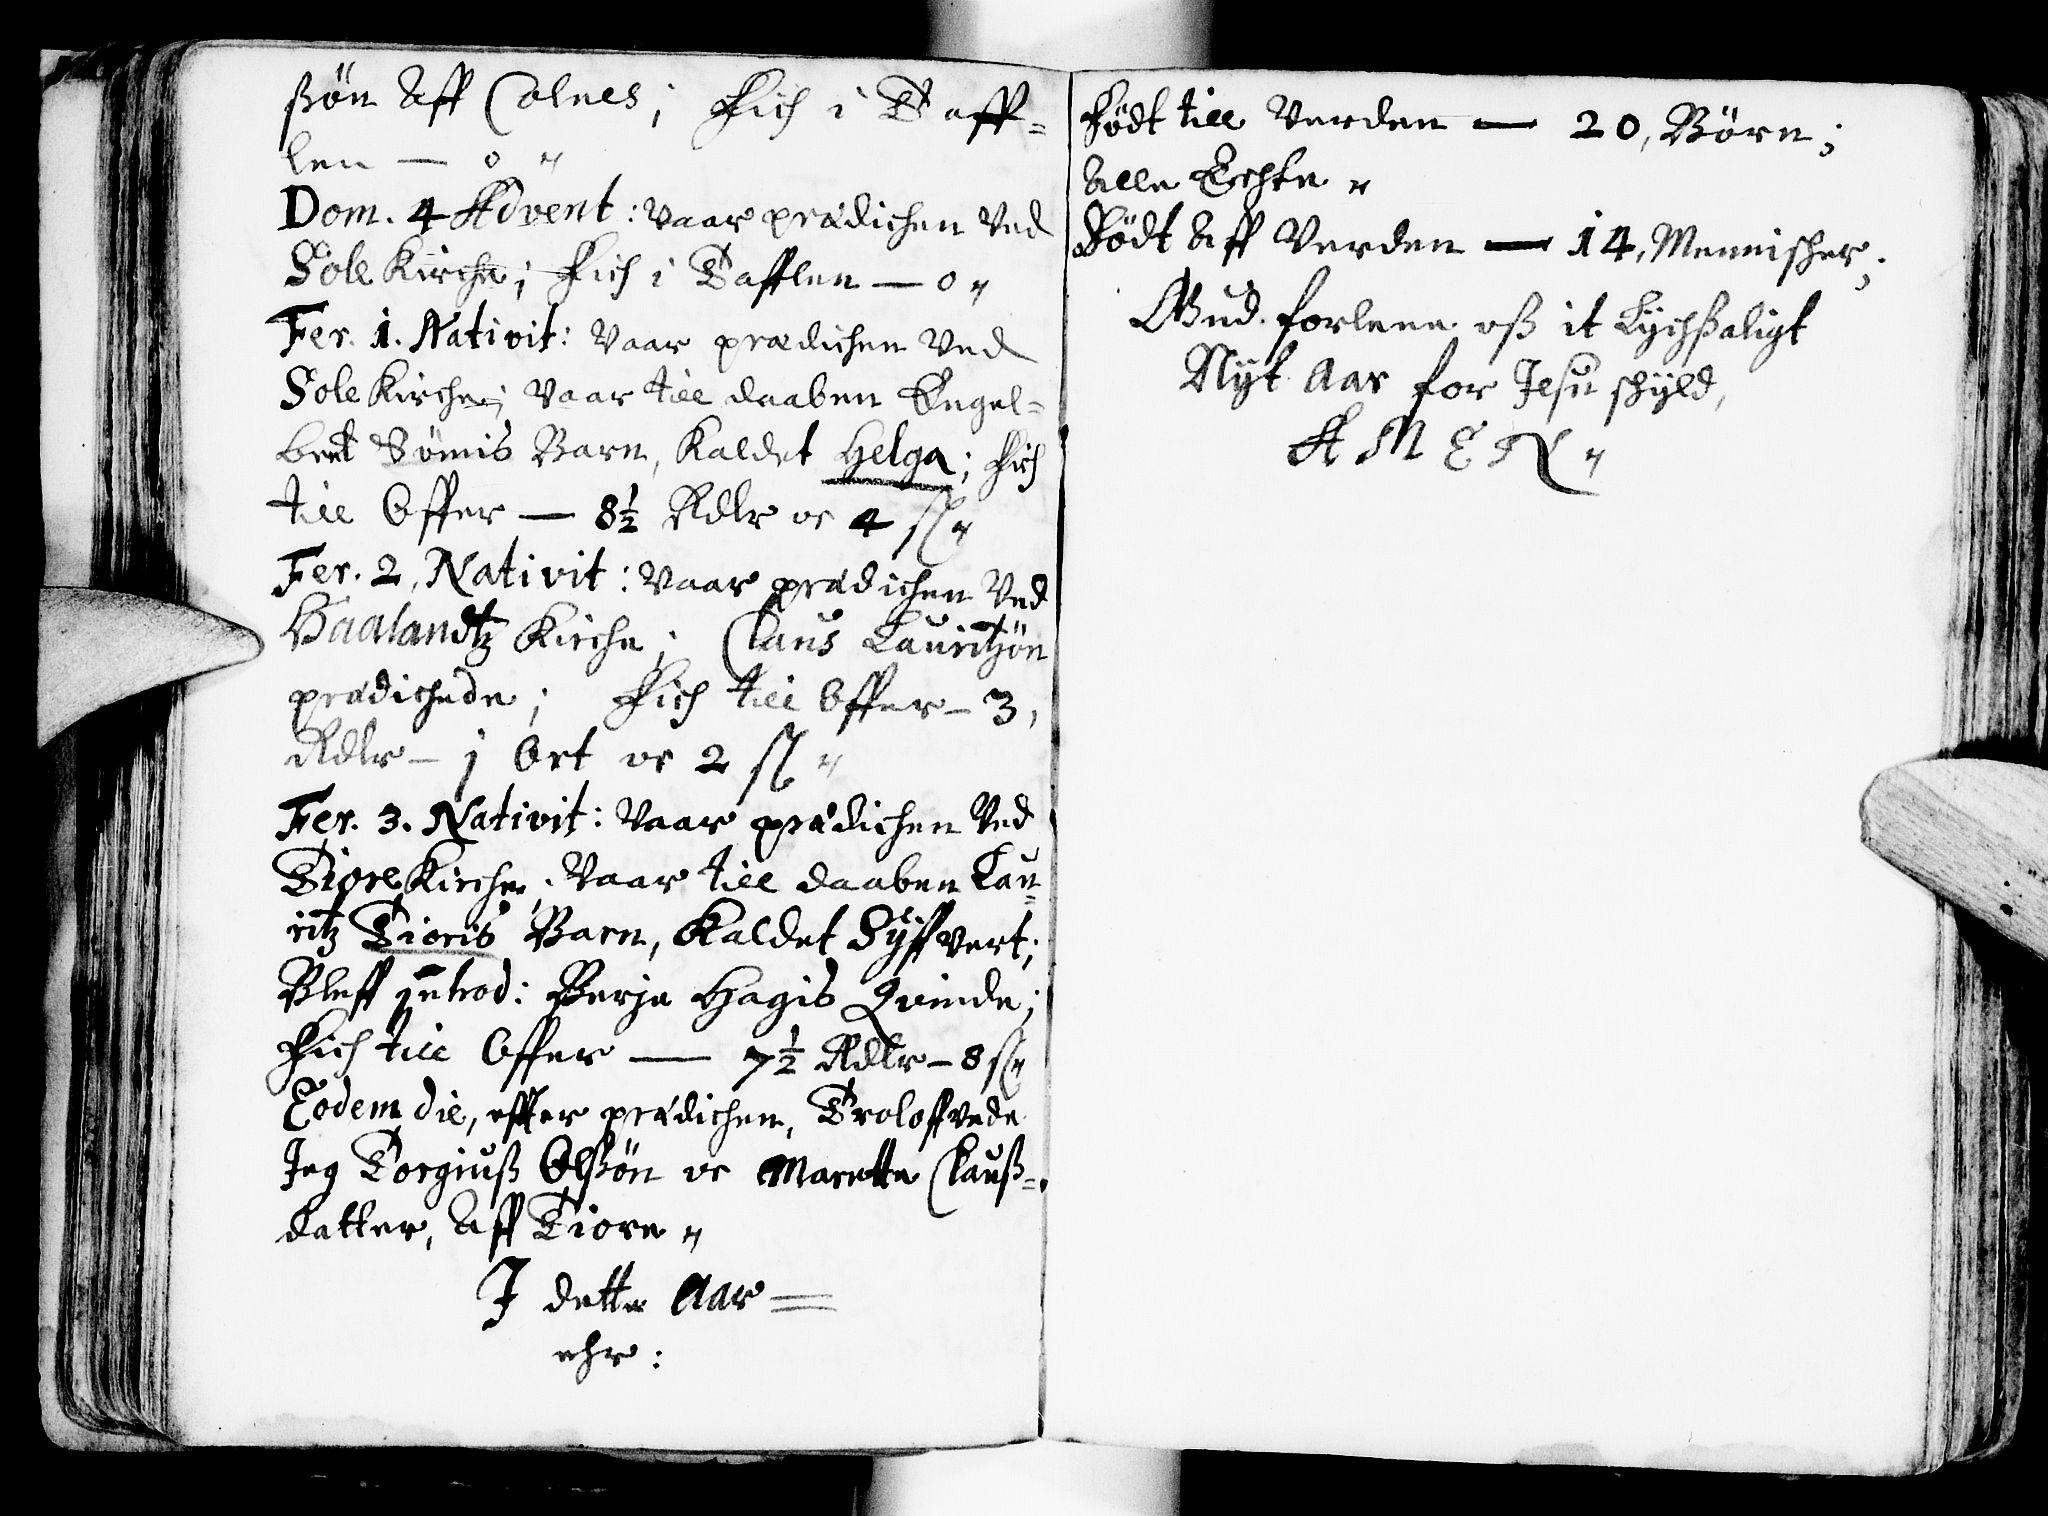 ßön Aff Colnes; Fich i Taff=
len — 0 "
Dom. 4 Advent: vaar prædichen Ved
Sole Kirche; Fich i Tafflen — 0 "
Fer. 1. Nativit: Vaar prædichen Ved
Sole Kirche; Vaar till daaben Engel=
bret Sömis Barn, Kaldet Helga; Fich
till Offer — 8½ Rdlr oc 4 ß "
Fer. 2, Nativit: vaar prædichen Ved
Haalandtz Kirche; Claus Lauritzön
prædichede; Fich till Offer — 3,
Rdlr — j Ort oc 2 ß "
Fer. 3. Nativit: Vaar prædichen Ved
Tiore Kirche; Vaar till daaben Lau=
ritz Tioris Barn, Kaldet Syffvert;
Bleff introd: Berje Hagis Qvinde;
Fich till Offer — 7½ Rdlr — 8 ß "
Eodem die, effter prædichen, Troloffvede
Jeg Torgiuß Olßön oc Marette Clauß=
datter, Aff Tiore "
I dette Aar =
ehr:
Födt till Verden — 20, Börn;
Alle Echte "
Födt Aff Verden — 14, Mennischer;
Gud forlene oß it Lychßaligt
Nyt Aar for Jesu schyld,
AMEN "